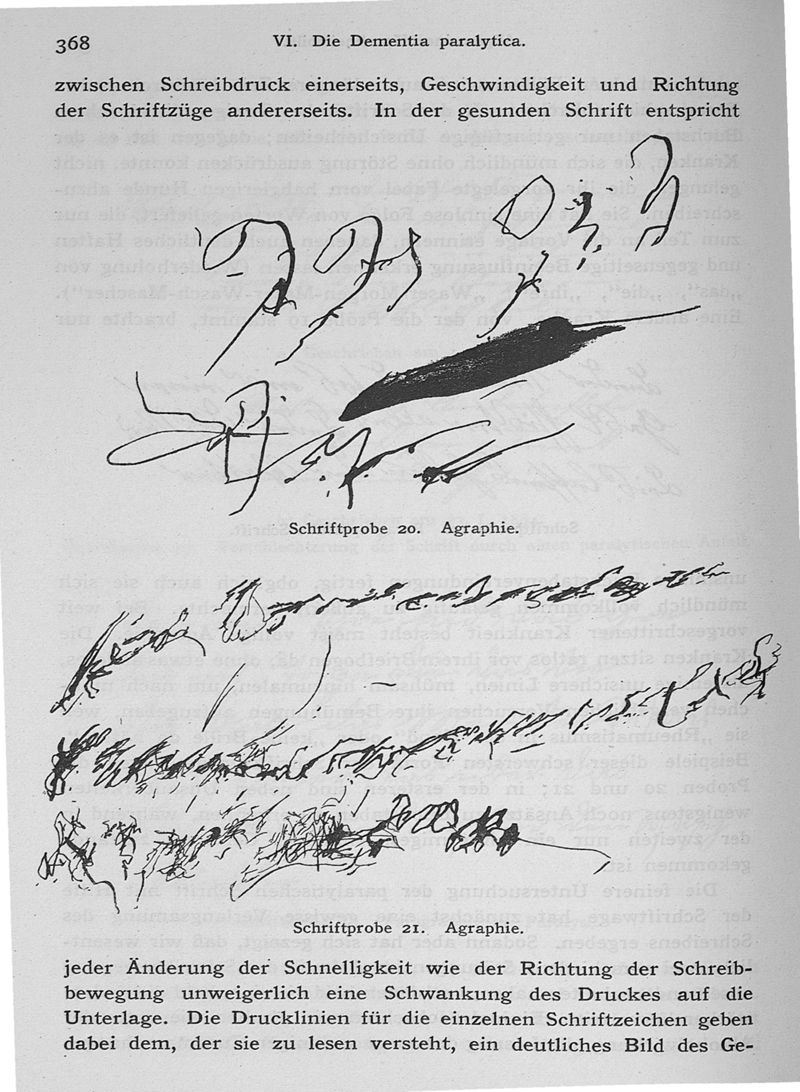 368
VI. Die Dementia paralytica.
zwischen Schreibdruck einerseits, Geschwindigkeit und Richtung
der Schriftzüge andererseits. In der gesunden Schrift entspricht
Schriftprobe 20. Agraphie.
Schriftprobe 21. Agraphie.
jeder Änderung der Schnelligkeit wie der Richtung der Schreib-
bewegung unweigerlich eine Schwankung des Druckes auf die
Unterlage. Die Drucklinien für die einzelnen Schriftzeichen geben
dabei dem, der sie zu lesen versteht, ein deutliches Bild des Ge-